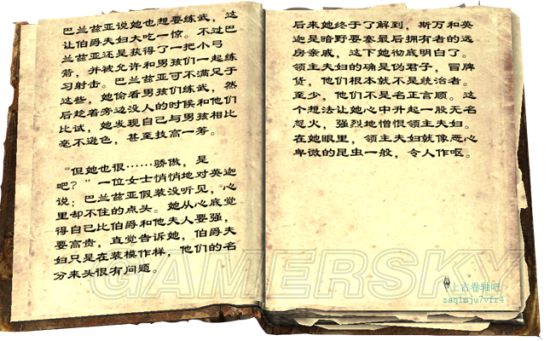 巴兰兹亚说她也想要练武，这
让伯爵夫妇大吃一惊。不过巴
兰兹亚还是获得了一把小弓
箭，并被允许和男孩们一起练
习射击。巴兰兹亚可不满足于
这些，她偷看男孩们练武，然
后趁着旁边没人的时候和他们
比试，她发现自己与男孩相比
毫不逊色，甚至技高一筹。
“但她也很……骄傲，是
吧？”一位女士悄悄地对英迦
说；巴兰兹亚假装没听见，心
里却不住的点头。她从心底觉
得自己比伯爵和他夫人要强，
要高贵，直觉告诉她，伯爵夫
妇只是在装模作样，他们的名
分来头很有问题。
后来她终于了解到，斯万和英
迦是暗野要塞最后拥有者的远
房亲戚，这下她彻底明白了。
领主夫妇的确是伪君子，冒牌
货，他们根本就不是统治者。
至少，他们不是名正言顺。这
个想法让她心中升起一股无名
怒火，强烈地憎恨领主夫妇。
在她眼里，领主夫妇就像恶心
卑微的昆虫一般，令人作呕。
GAMERSKY
上古卷轴吧
zaq1mju7vfr4